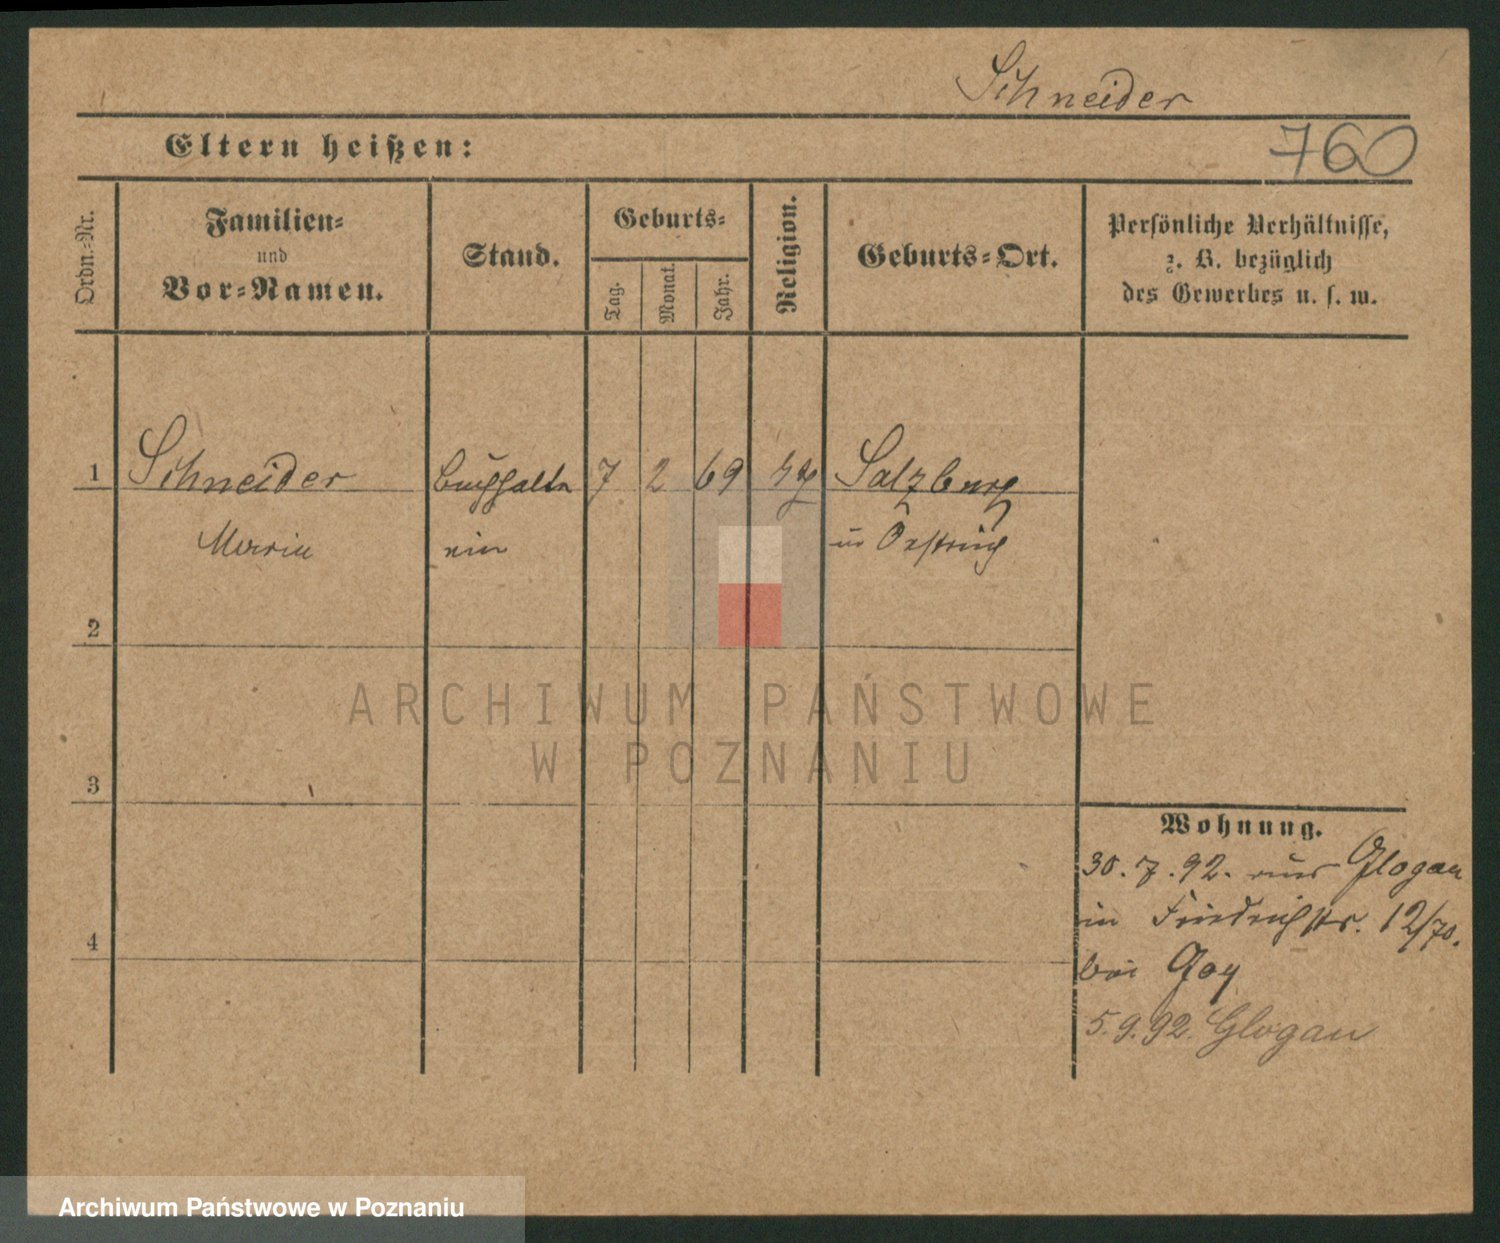 Schneider
Eltern heißen:
760
Ordn.=Nr.
Familien=
und
Vor=Namen.
Stand.
Geburts=
Tag.
Monat.
Jahr.
Religion.
Geburts=Ort.
Persönliche Verhältnisse,
z. B. bezüglich
des Gewerbes u. s. w.
1 Schneider Buchhalte 7 2 69 Salzburg
Maria rin in Östreich
2
ARCHIWUM PAŃSTWOWE
W POZNANIU
3
Wohnung.
30.7.92. aus Glogau
in Friedrichstr. 12/70.
4
bei Goy
5.9.92. Glogau
Archiwum Państwowe w Poznaniu